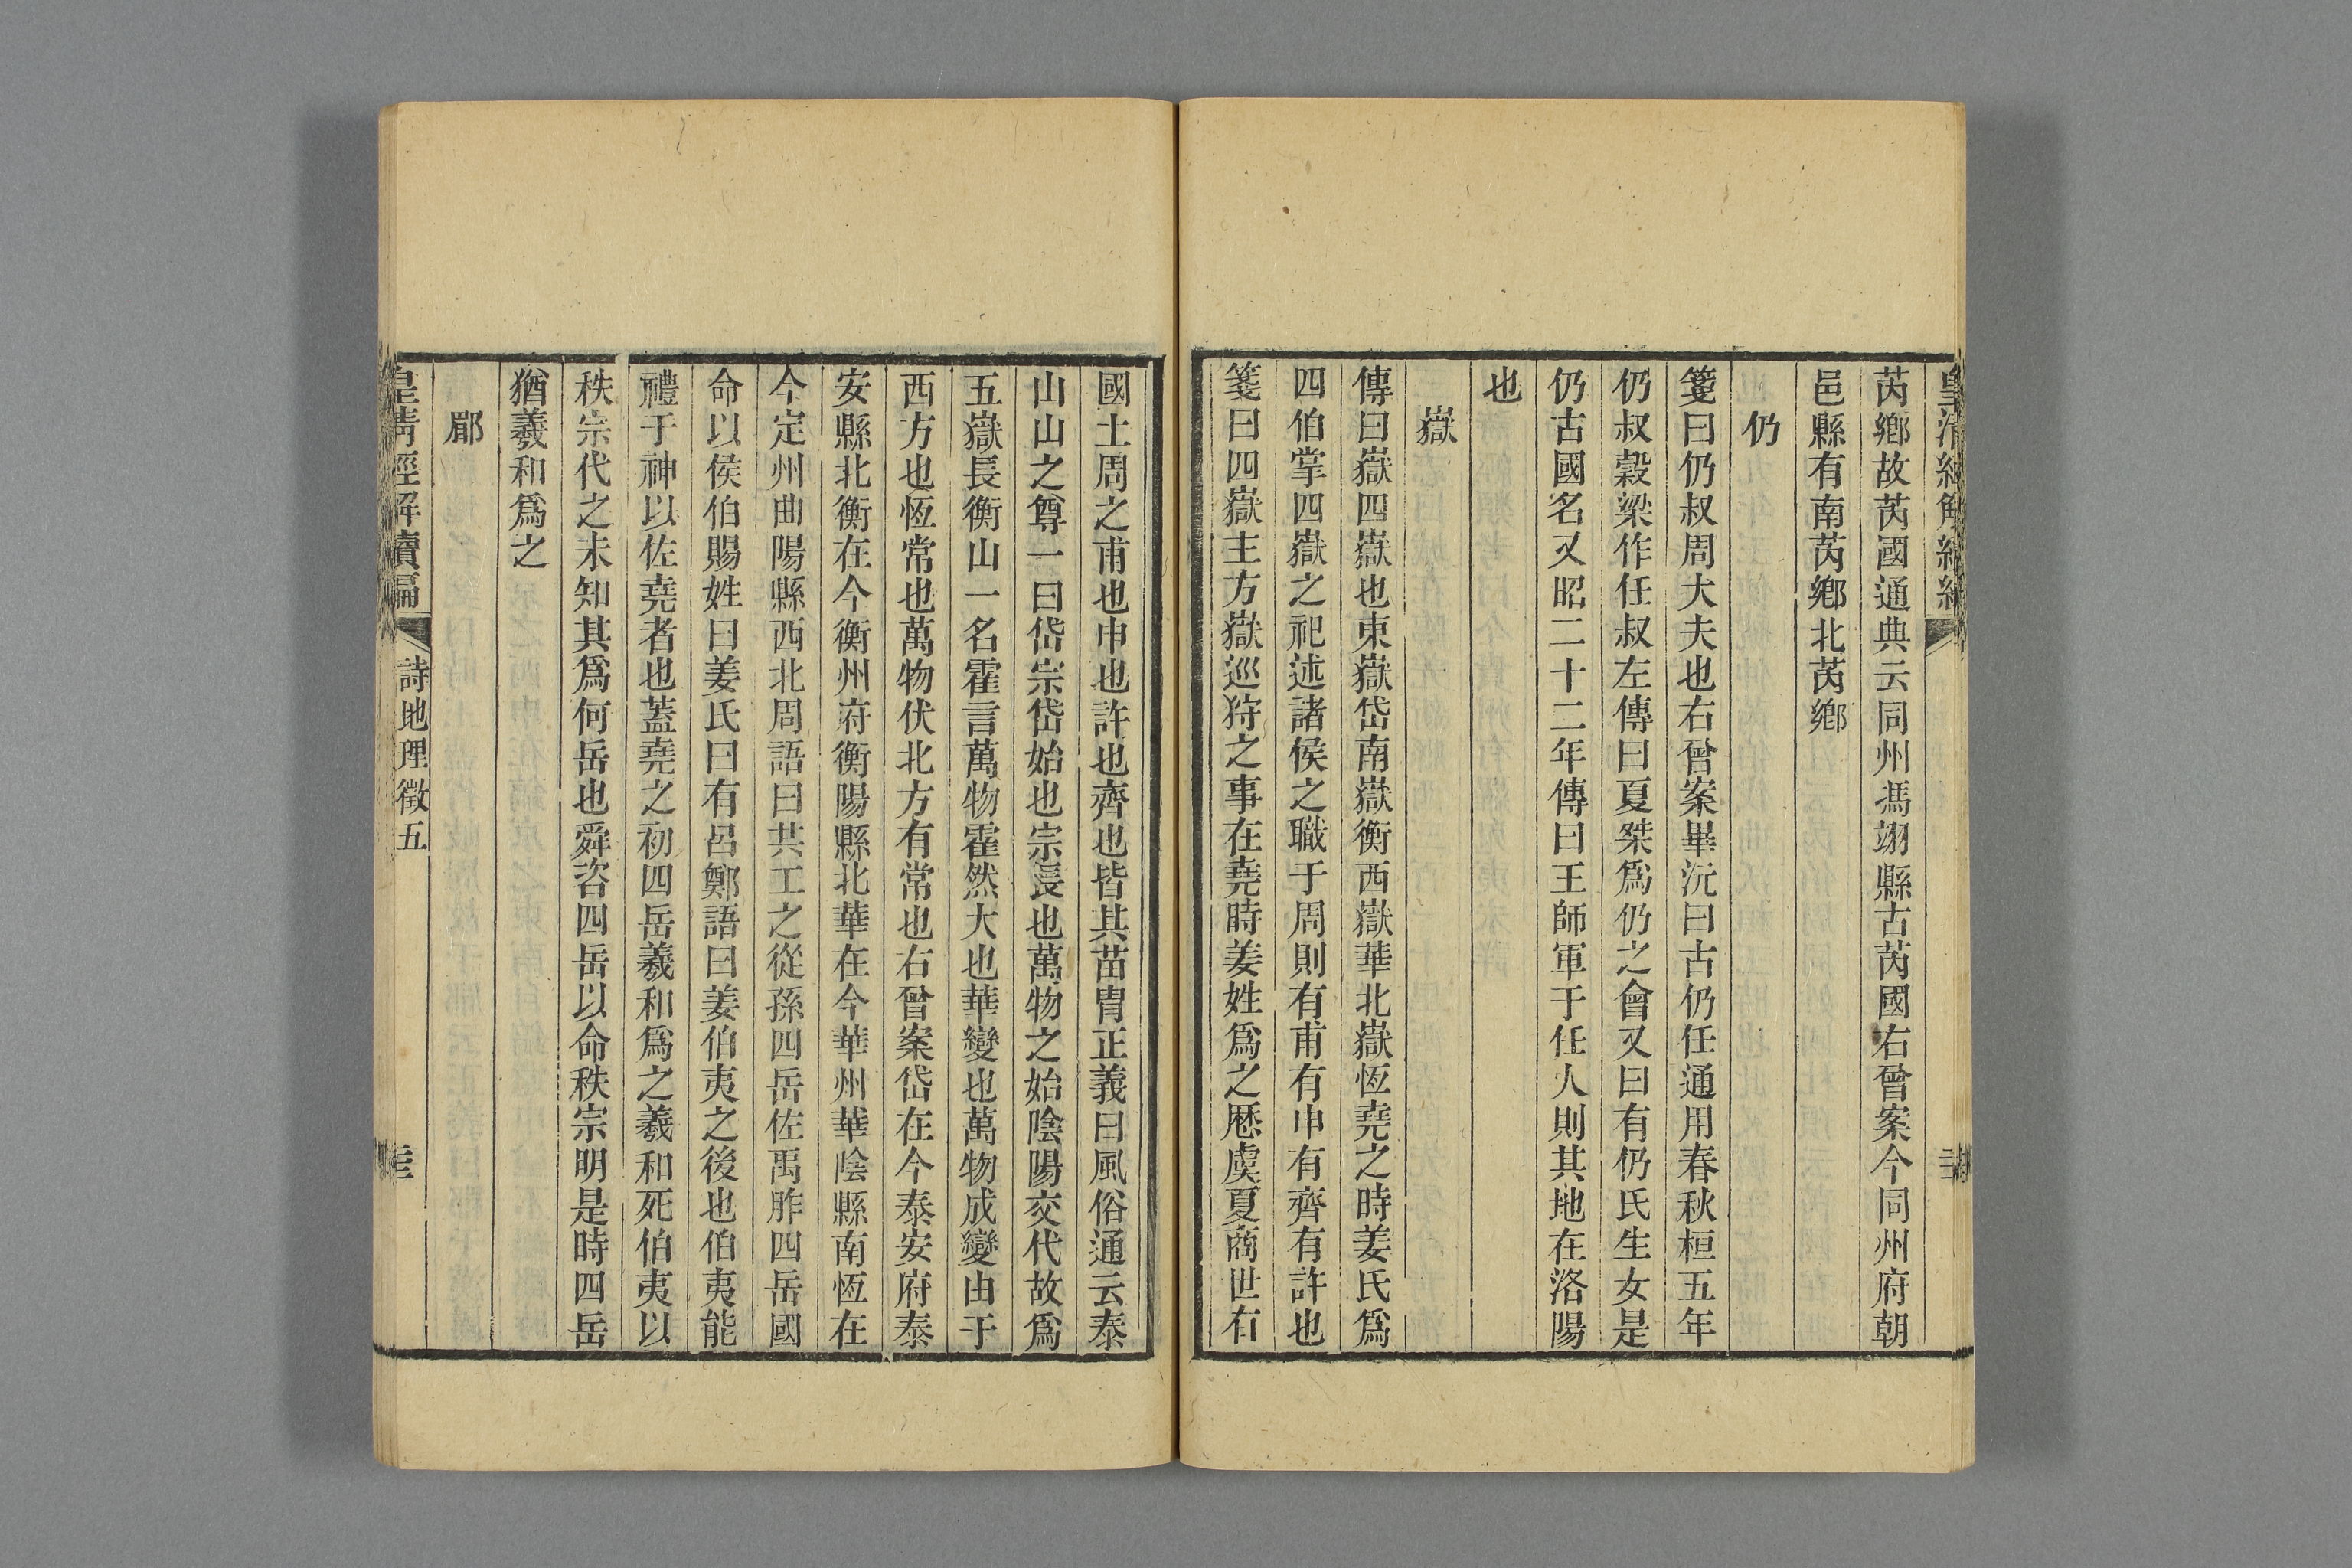 芮鄉故芮國通典云同州馮翊縣古芮國右曾案今同州府朝
邑縣有南芮鄉北芮鄉
仍
箋曰仍叔周大夫也右曾案畢沅曰古仍任通用春秋桓五年
仍叔穀梁作任叔左傳曰夏桀爲仍之會又曰有仍氏生女是
仍古國名又昭二十二年傳曰王師軍于任人則其地在洛陽
也
嶽
傳曰嶽四嶽也東嶽岱南嶽衡西嶽華北嶽恆堯之時姜氏爲
四伯掌四嶽之祀述諸侯之職于周則有甫有申有齊有許也
箋曰四嶽主方嶽巡狩之事在堯時姜姓爲之厯虞夏商世有
國土周之甫也申也許也齊也皆其苗胄正義曰風俗通云泰
山山之尊一曰岱宗岱始也宗長也萬物之始陰陽交代故爲
五嶽長衡山一名霍言萬物霍然大也華變也萬物成變由于
西方也恆常也萬物伏北方有常也右曾案岱在今泰安府泰
安縣北衡在今衡州府衡陽縣北華在今華州華陰縣南恆在
今定州曲陽縣西北周語曰共工之從孫四岳佐禹胙四岳國
命以侯伯賜姓曰姜氏曰有呂鄭語曰姜伯夷之後也伯夷能
禮于神以佐堯者也蓋堯之初四岳羲和爲之羲和死伯夷以
秩宗代之未知其爲何岳也舜咨四岳以命秩宗明是時四岳
猶羲和爲之
郿
皇清經解續編
詩地理徵五